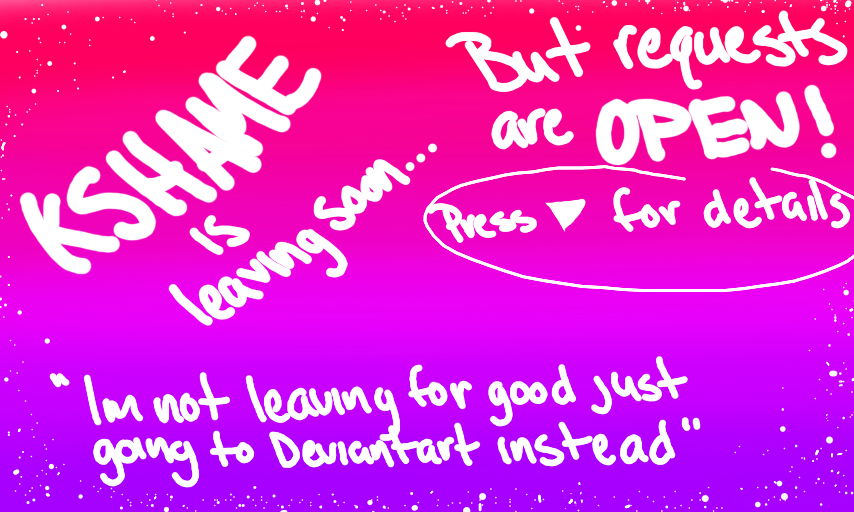 KSHAME
is
leaving soon...
But requests
are OPEN!
Press ▼ for details
"Im not leaving for good just
going to Deviantart instead"